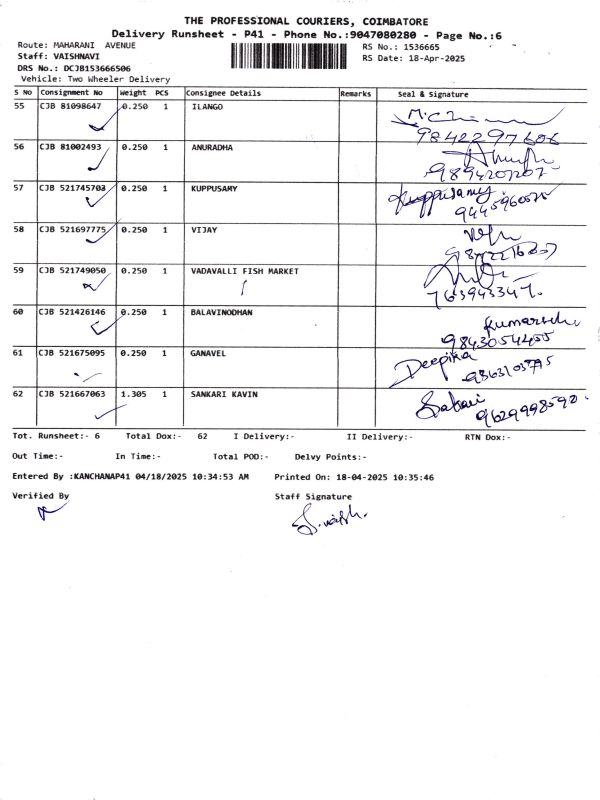 THE PROFESSIONAL COURIERS, COIMBATORE
Delivery Runsheet - P41 - Phone No.:9047080280 - Page No.:6
Route: MAHARANI AVENUE RS No.: 1536665
Staff: VAISHNAVI RS Date: 18-Apr-2025
DRS No.: DCJB153666506
Vehicle: Two Wheeler Delivery
S NO Consignment No Weight PCS Consignee Details Remarks Seal & Signature
55 CJB 81098647 0.250 1 ILANGO
9842297606
56 CJB 81002493 0.250 1 ANURADHA
9894207207
57 CJB 521745703 0.250 1 KUPPUSAMY Kuppusamy
58 CJB 521697775 0.250 1 VIJAY
59 CJB 521749050 0.250 1 VADAVALLI FISH MARKET
60 CJB 521426146 0.250 1 BALAVINODHAN
9843054455
61 CJB 521675095 0.250 1 GANAVEL Deepika
62 CJB 521667063 1.305 1 SANKARI KAVIN
9629998590
Tot. Runsheet:- 6 Total Dox:- 62 I Delivery:- II Delivery:- RTN Dox:-
Out Time:- In Time:- Total POD:- Delvy Points:-
Entered By :KANCHANAP41 04/18/2025 10:34:53 AM Printed On: 18-04-2025 10:35:46
Verified By Staff Signature